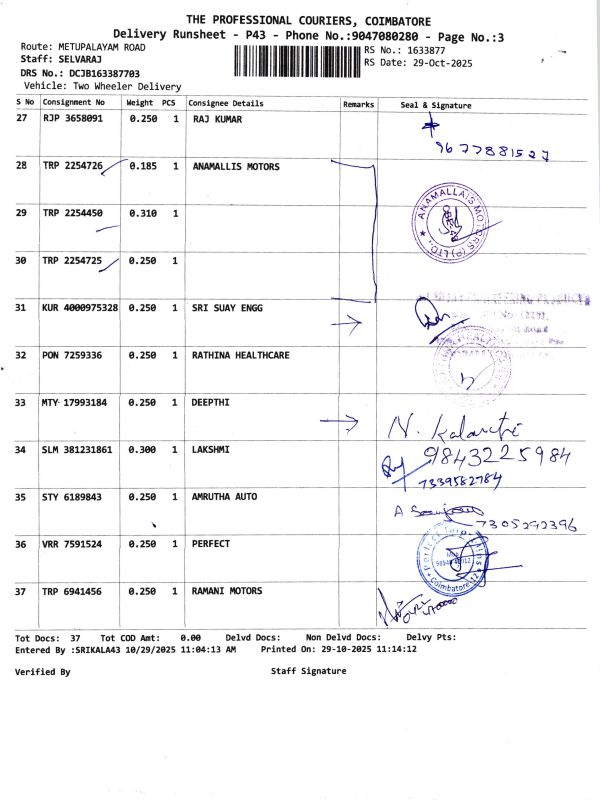 THE PROFESSIONAL COURIERS, COIMBATORE
Delivery Runsheet - P43 - Phone No.:9047080280 - Page No.:3
Route: METUPALAYAM ROAD
RS No.: 1633877
Staff: SELVARAJ
RS Date: 29-Oct-2025
DRS No.: DCJB163387703
Vehicle: Two Wheeler Delivery
S No Consignment No Weight PCS Consignee Details Remarks Seal & Signature
27 RJP 3658091 0.250 1 RAJ KUMAR
9677881527
28 TRP 2254726 0.185 1 ANAMALLIS MOTORS
29 TRP 2254450 0.310 1
ANAMALLAIS MOTORS (P) LTD.,
30 TRP 2254725 0.250 1
31 KUR 4000975328 0.250 1 SRI SUAY ENGG
32 PON 7259336 0.250 1 RATHINA HEALTHCARE
33 MTY 17993184 0.250 1 DEEPTHI
N. Kalarathi
34 SLM 381231861 0.300 1 LAKSHMI 9843225984
7339582784
35 STY 6189843 0.250 1 AMRUTHA AUTO
7305292396
36 VRR 7591524 0.250 1 PERFECT
Perfect
Coimbatore
37 TRP 6941456 0.250 1 RAMANI MOTORS
Tot Docs: 37 Tot COD Amt: 0.00 Delvd Docs: Non Delvd Docs: Delvy Pts:
Entered By :SRIKALA43 10/29/2025 11:04:13 AM Printed On: 29-10-2025 11:14:12
Verified By Staff Signature